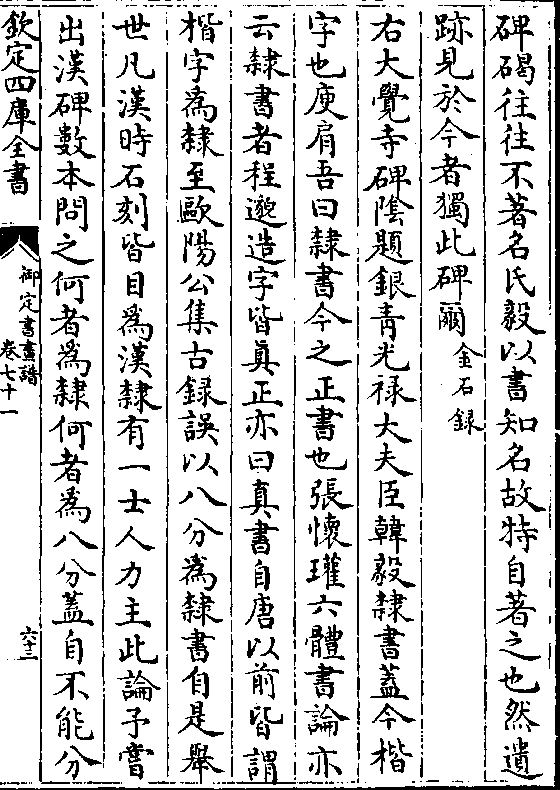 碑碣往往不著名氏毅以書知名故特自著之也然遺
跡見於今者獨此碑爾金石録
右大覺寺碑隂題銀青光禄大夫臣韓毅隸書蓋今楷
字也庾肩吾曰隸書今之正書也張懷瓘六體書論亦
云隸書者程邈造字皆真正亦曰真書自唐以前皆謂
楷字為隸至歐陽公集古録誤以八分為隸書自是舉
世凡漢時石刻皆目為漢隸有一士人力主此論予嘗
出漢碑數本問之何者為隸何者為八分蓋自不能分
欽定四庫全書
御定書畫譜
卷七十一
六十三